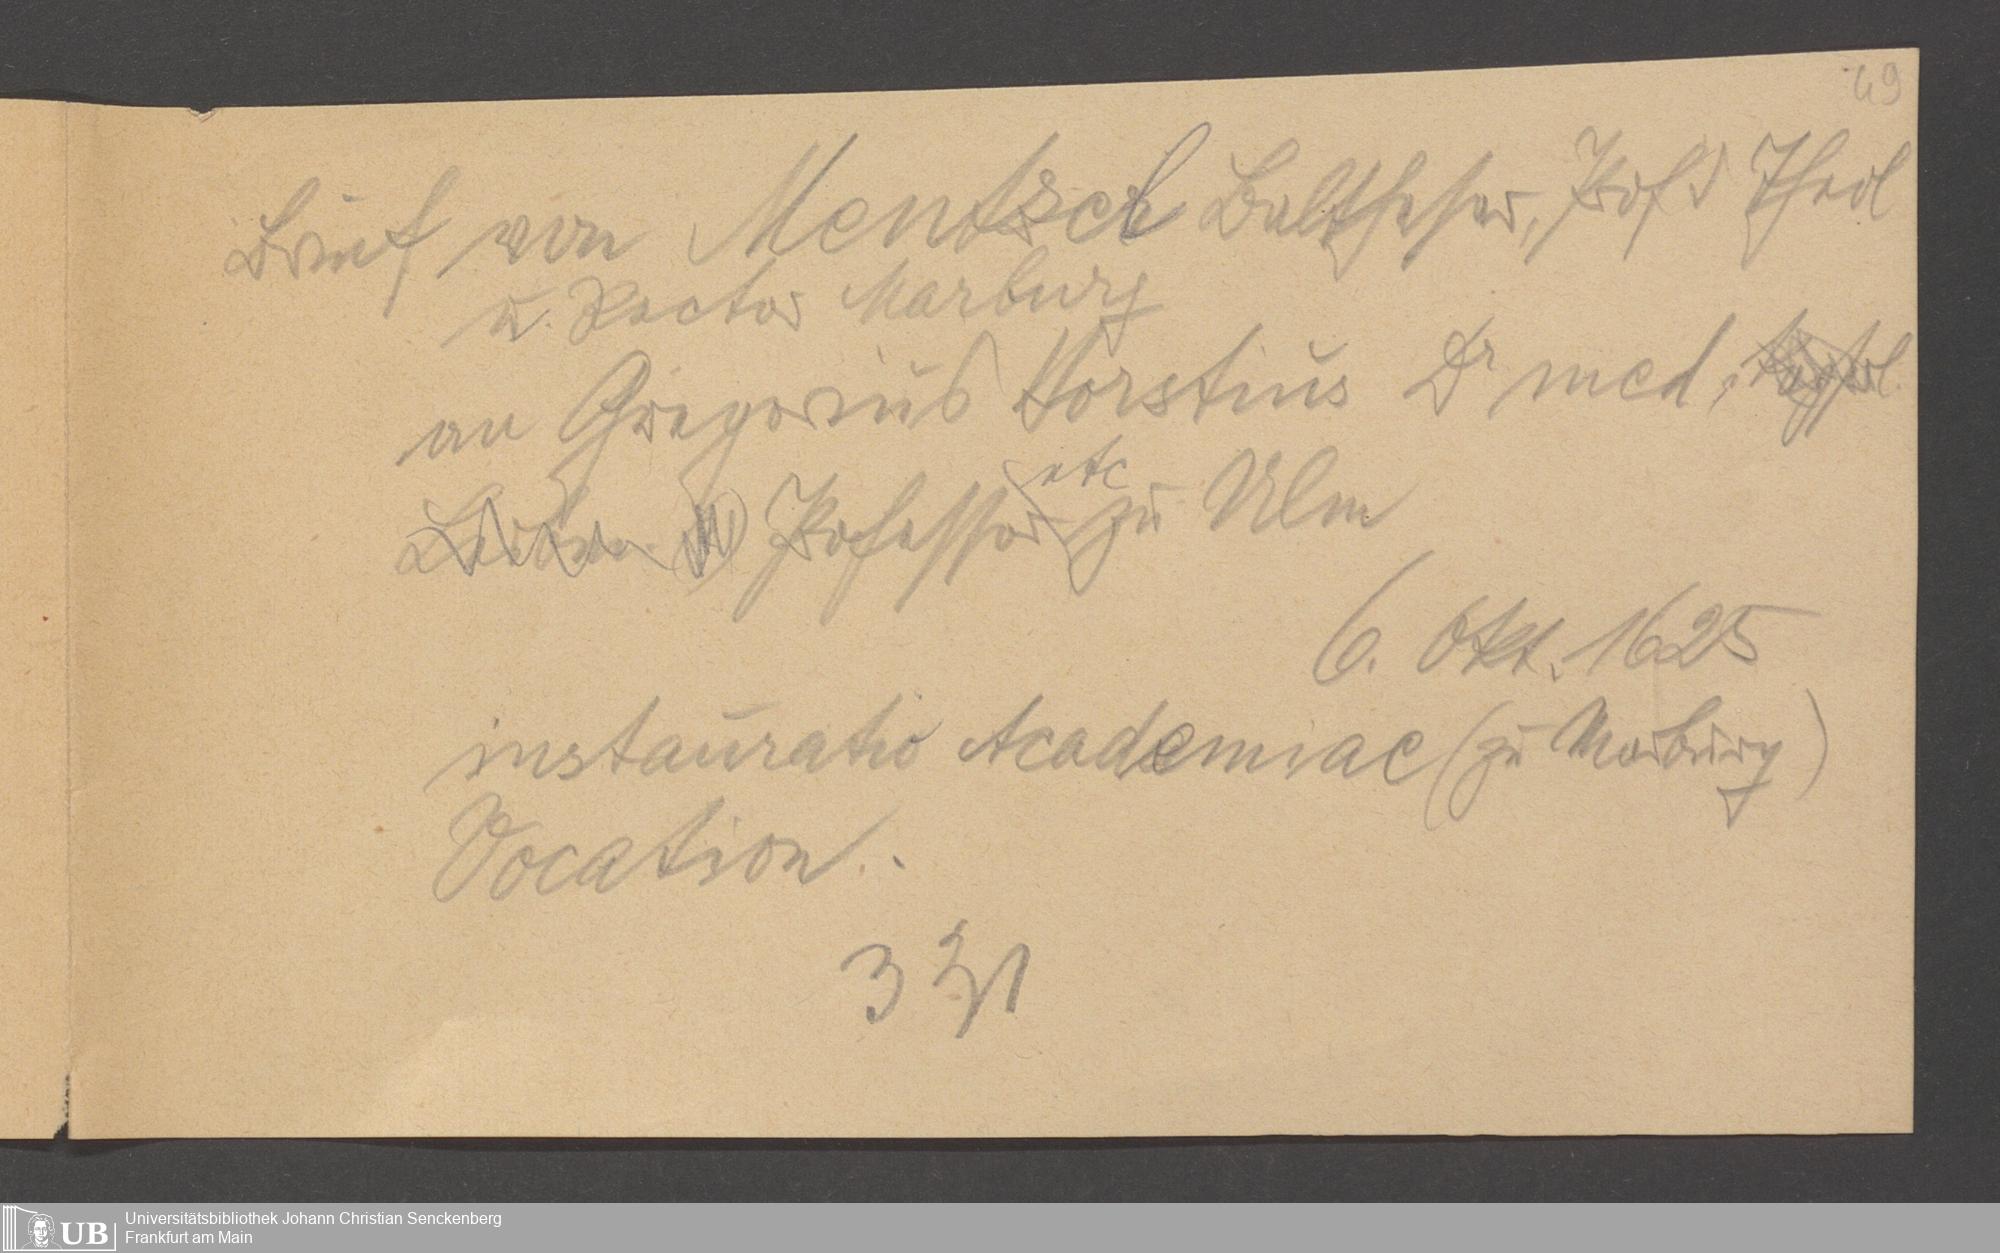 49
Brief von Mentzel Balthasar, Prof d Theol
u. Rector Marburg
an Gregorius Horstius Dr med,
Professor etc zu Ulm
6. Okt. 1625
instauratio Academiae (zu Marburg)
Vocation.
Universitätsbibliothek Johann Christian Senckenberg
Frankfurt am Main
UB